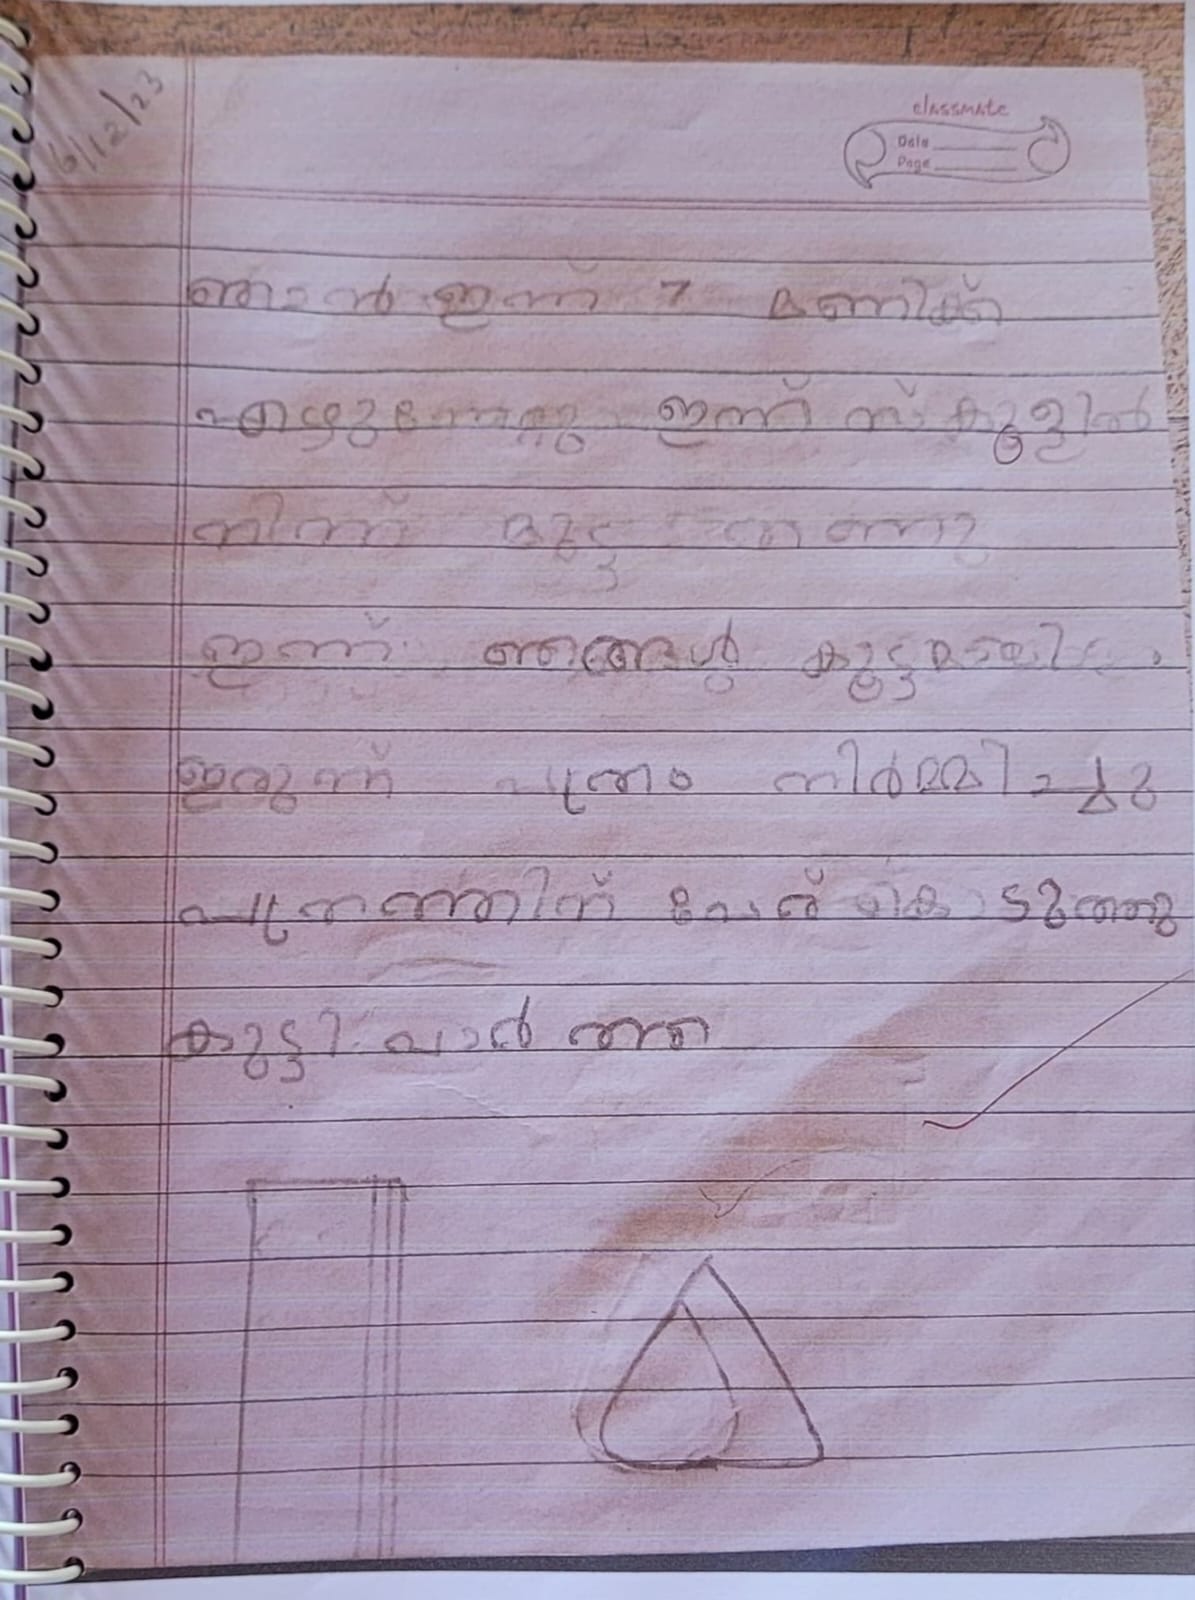 6/12/23
classmate
Date
Page
ഞാൻ ഇന്ന് 7 മണിക്ക്
എഴുന്നേറ്റു ഇന്ന് സ്കൂളിൽ
നിന്ന് മുട്ട തന്നു
ഇന്ന് ഞങ്ങൾ കൂട്ടമായി
ഇരുന്ന് പത്രം നിർമ്മിച്ചു
പത്രത്തിന് പേര് കൊടുത്തു
കുട്ടി വാർത്ത